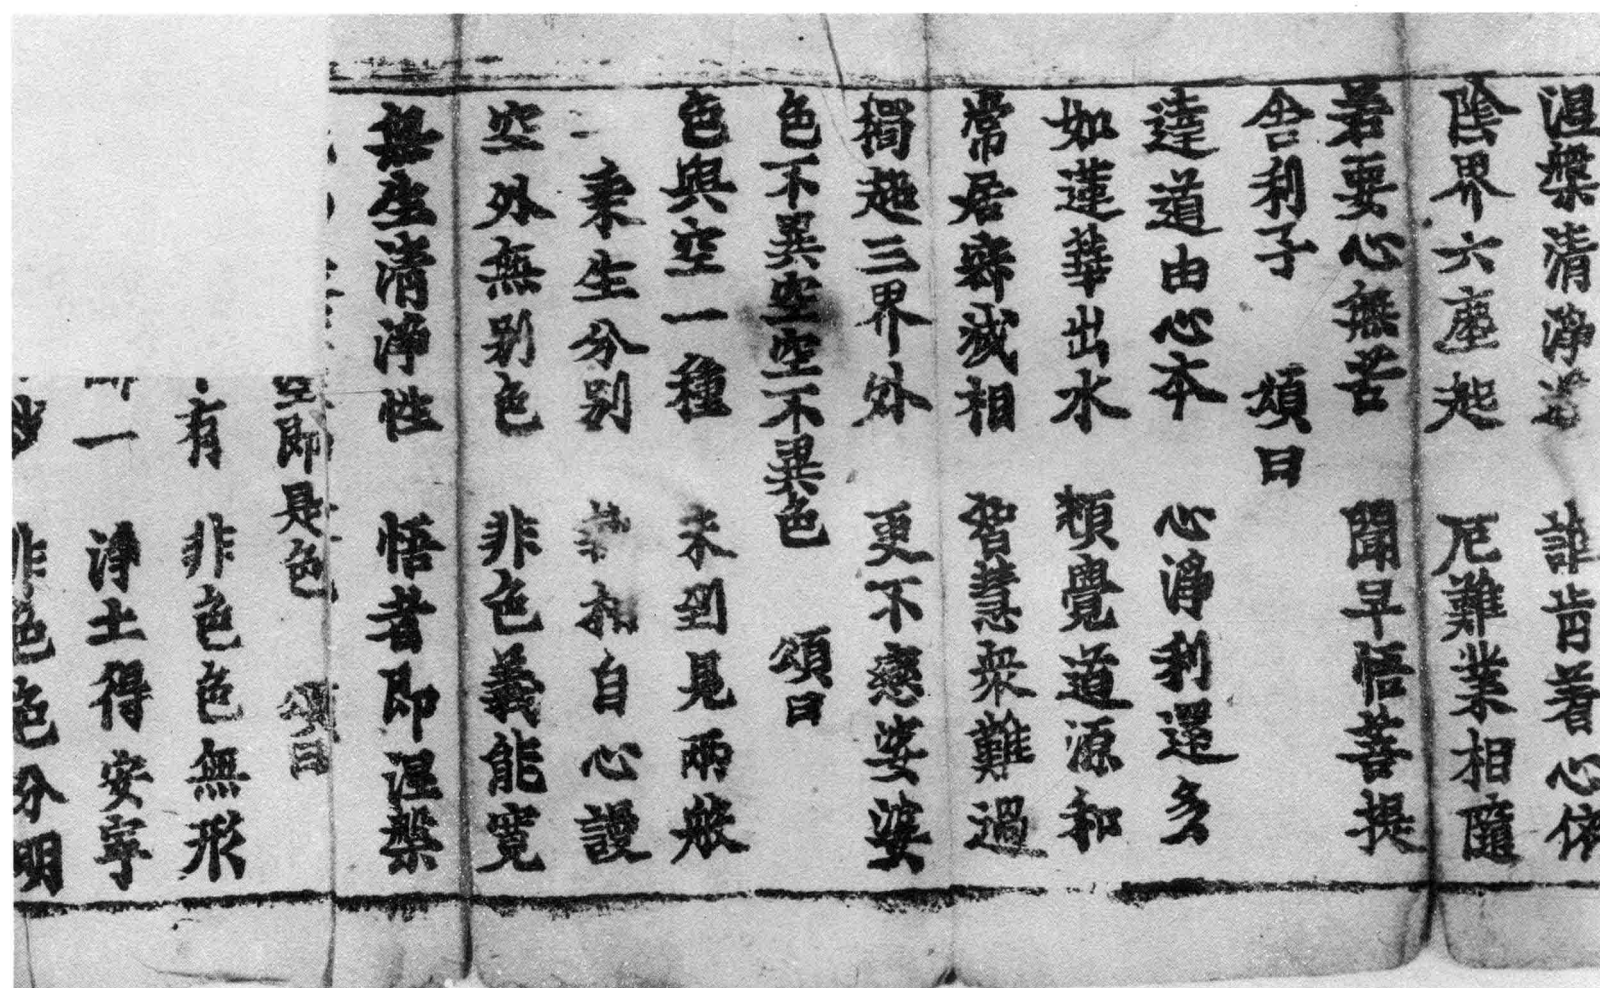 涅槃清淨道 誰肯著心依
陰界六塵起 厄難業相隨
若要心無苦 聞早悟菩提
舍利子 頌曰
達道由心本 心淨利還多
如蓮華出水 頓覺道源和
常居寂滅相 智慧衆難過
獨超三界外 更不戀娑婆
色不異空空不異色 頌曰
色與空一種 未到見兩般
二乘生分別 執相自心謾
空外無別色 非色義能寬
無生清淨性 悟者即涅槃
空即是色 頌曰
有 非色色無形
一 淨土得安寧
妙 非色色分明